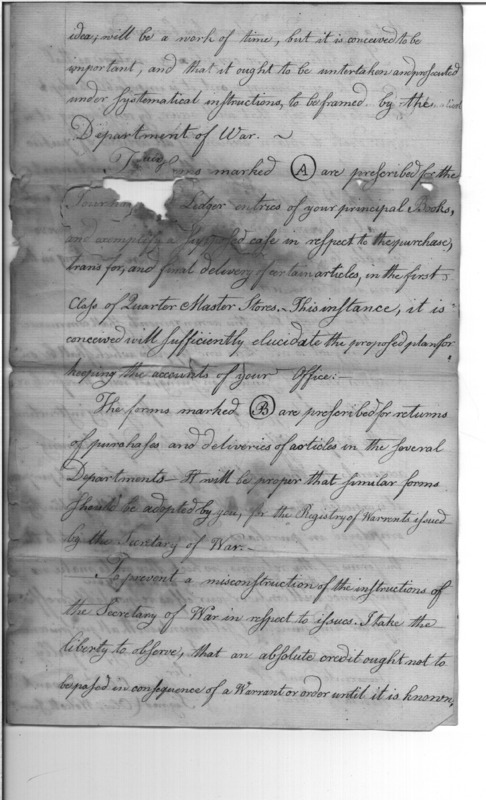 idea, will be a work of time, but it is conceived to be
important, and that it ought to be undertaken and prosecuted
under systematical instructions, to be framed by the
Department of War. ~
marked Ⓐ are prescribed for the
Ledger entries of your principal Books,
and exemplify a supposed case in respect to the purchase,
transfer, and final delivery of certain articles, in the first
Class of Quarter Master Stores. - This instance, it is
conceived will sufficiently elucidate the proposed plan for
keeping the accounts of your Office: -
The forms marked Ⓑ are prescribed for returns
of purchases and deliveries of articles in the several
Departments - It will be proper that similar forms
should be adopted by you, for the Registry of Warrants issued
by the Secretary of War. -
To prevent a misconstruction of the instructions of
the Secretary of War in respect to issues. I take the
liberty to observe, that an absolute credit ought not to
be passed in consequence of a Warrant or order until it is known,